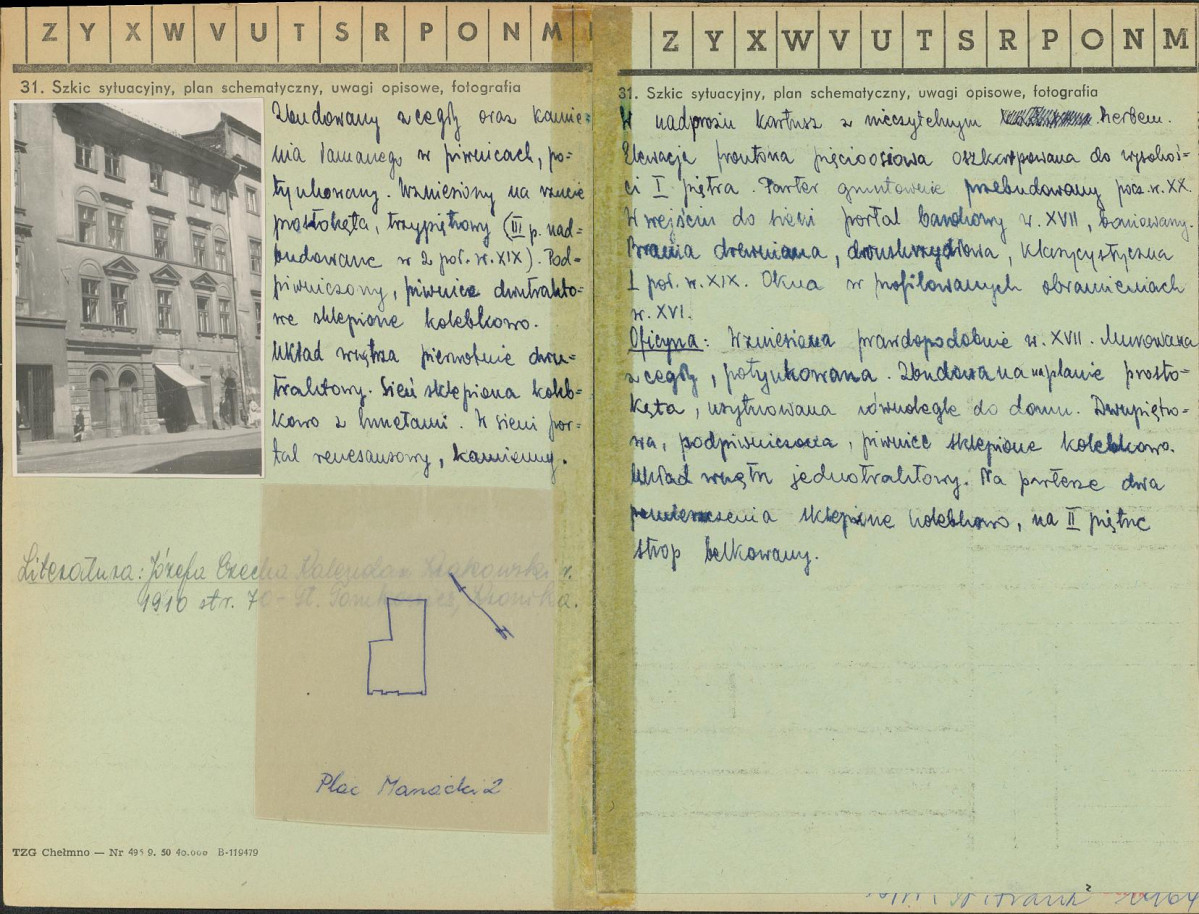 Z Y X W V U T S R P O N M
31. Szkic sytuacyjny, plan schematyczny, uwagi opisowe, fotografia
Zbudowany z cegły oraz kamie=
nia łamanego w piwnicach, po=
tynkowany. Wzniesiony na rzucie
prostokąta, trzypiętrowy (III p. nad=
budowane w 2 poł. w. XIX). Pod=
piwniczony, piwnice dwutrakto=
we sklepione kolebkowo.
Układ wnętrza pierwotnie dwu=
traktowy. Sień sklepiona koleb=
kowo z lunetami. W sieni por=
tal renesansowy, kamienny.
Literatura: Józefa Czecha Kalendarz Krakowski r.
1910 str. 70 - St. Tomkowicz, Kronika.
Plac Mariacki 2
TZG Chełmno — Nr 495 9. 50 40.000 B-119479
Z Y X W V U T S R P O N M
31. Szkic sytuacyjny, plan schematyczny, uwagi opisowe, fotografia
W nadprożu kartusz z nieczytelnym herbem.
Elewacja frontowa pięcioosiowa oszkarpowana do wysokoś=
ci I piętra. Parter gruntownie przebudowany pocz. w. XX.
W wejściu do sieni portal barokowy w. XVII, boniowany.
Brama drewniana, dwuskrzydłowa, klasycystyczna
1 poł. w. XIX. Okna w profilowanych obramieniach
w. XVI.
Oficyna: Wzniesiona prawdopodobnie w. XVII. Murowana
z cegły, potynkowana. Zbudowana na planie prosto=
kąta, usytuowana równolegle do domu. Dwupiętro=
wa, podpiwniczona, piwnice sklepione kolebkowo.
Układ wnętrz jednotraktowy. Na parterze dwa
pomieszczenia sklepione kolebkowo, na II piętrze
strop belkowany.